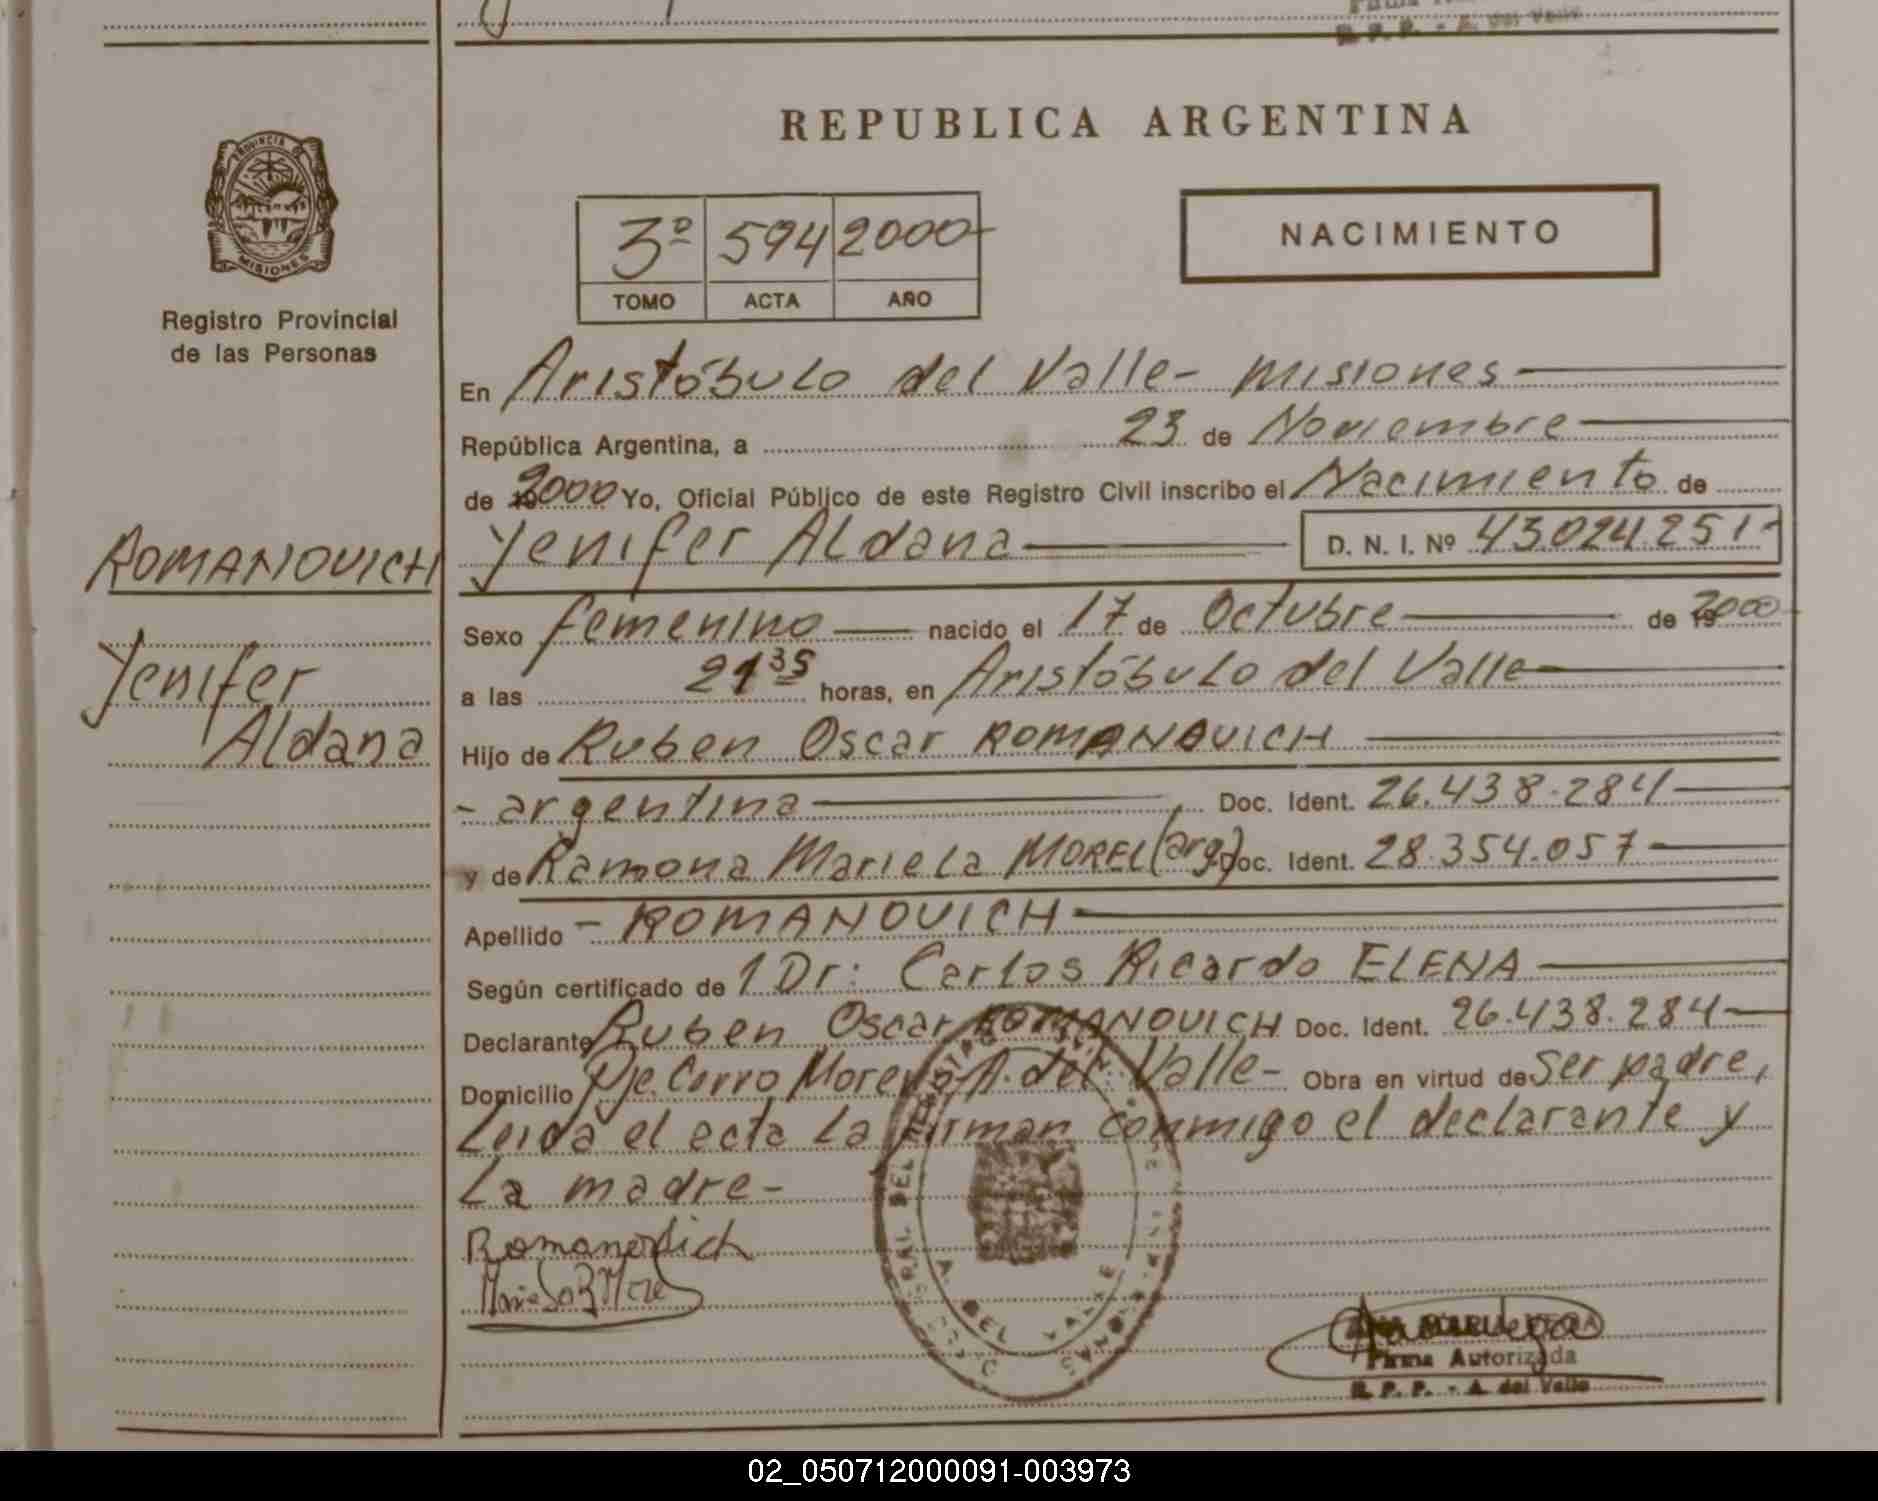 R. P. P. - A. del Valle
REPUBLICA ARGENTINA
PROVINCIA
MISIONES
Registro Provincial
de las Personas
3º 594 2000
TOMO ACTA AÑO
NACIMIENTO
En Aristóbulo del Valle - Misiones
República Argentina, a 23 de Noviembre
de 2000 Yo, Oficial Público de este Registro Civil inscribo el Nacimiento de
ROMANOVICH
Yenifer Aldana D. N. I. Nº 43.024.251-
Yenifer
Aldana
Sexo femenino nacido el 17 de Octubre de 2000
a las 21 35 horas, en Aristóbulo del Valle
Hijo de Ruben Oscar ROMANOVICH
- argentina Doc. Ident. 26.438.284
y de Ramona Mariela MOREL (arg.) Doc. Ident. 28.354.057
Apellido - ROMANOVICH
Según certificado de 1 Dr: Carlos Ricardo ELENA
Declarante Ruben Oscar ROMANOVICH Doc. Ident. 26.438.284
Domicilio Pje. Cerro Moreno A. del Valle - Obra en virtud de ser padre,
Leida el acta la firman conmigo el declarante y
La madre -
Romanovich
A. DEL VALLE
Firma Autorizada
R. P. P. - A. del Valle
02_050712000091-003973